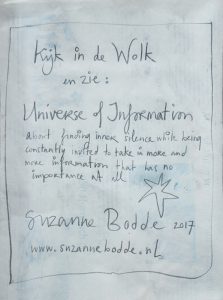 Kijk in de Wolk
en zie:
Universe of Information
about finding inner silence while being
constantly invited to take in more and
more information that has no
importance at all
Suzanne Bodde 2017
www.suzannebodde.nl